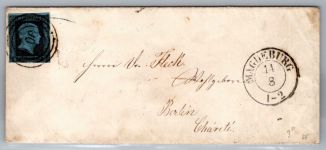 MAGDEBURG
11
8
1-2
Herrn Dr. Fleck
Wohlgeboren
Berlin
Charité.